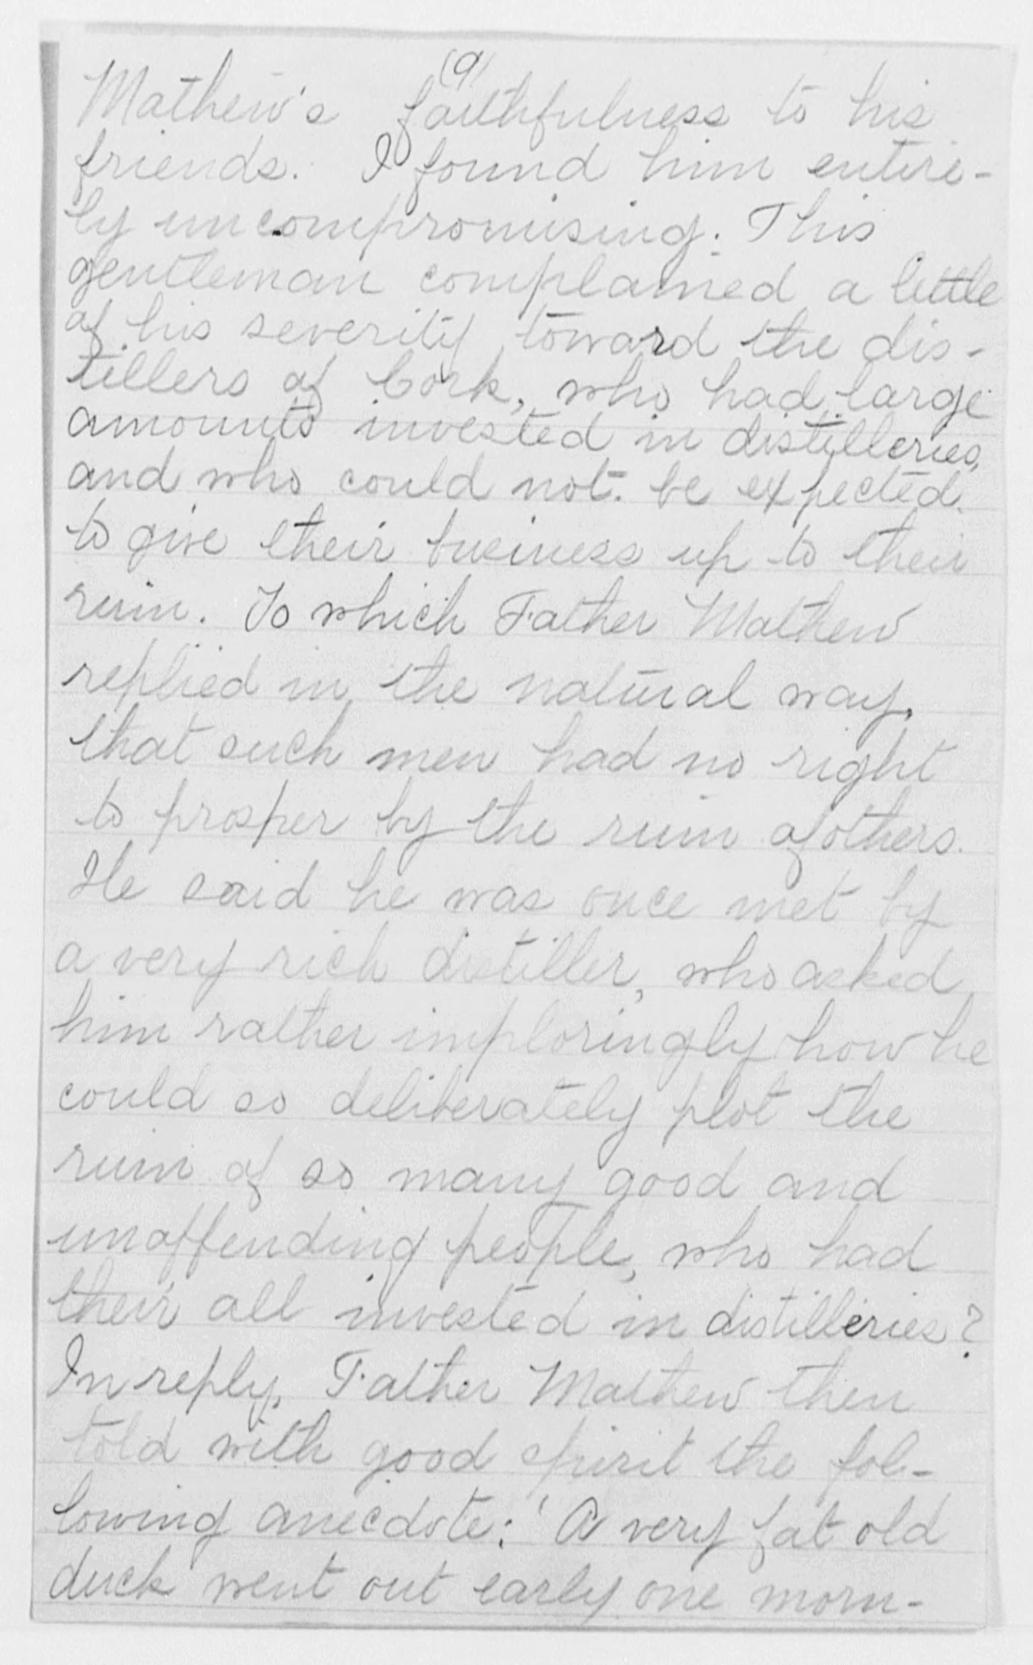 (9)
Mathew's faithfulness to his
friends. I found him entire-
ly uncompromising. This
gentleman complained a little
of his severity toward the dis-
tillers of Cork, who had large
amounts invested in distilleries,
and who could not be expected
to give their business up to their
ruin. To which Father Mathew
replied in the natural way,
that such men had no right
to prosper by the ruin of others.
He said he was once met by
a very rich distiller, who asked
him rather imploringly how he
could so deliberately plot the
ruin of so many good and
unoffending people, who had
their all invested in distilleries?
In reply, Father Mathew then
told with good spirit the fol-
lowing anecdote: 'A very fat old
duck went out early one morn-